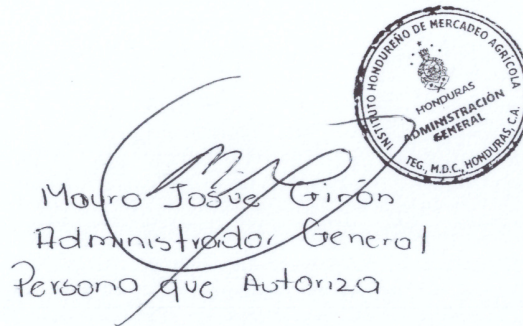 INSTITUTO HONDUREÑO DE MERCADEO AGRÍCOLA
HONDURAS
ADMINISTRACIÓN
GENERAL
TEG., M.D.C., HONDURAS, C.A.
Mauro Josue Girón
Administrador General
Persona que Autoriza